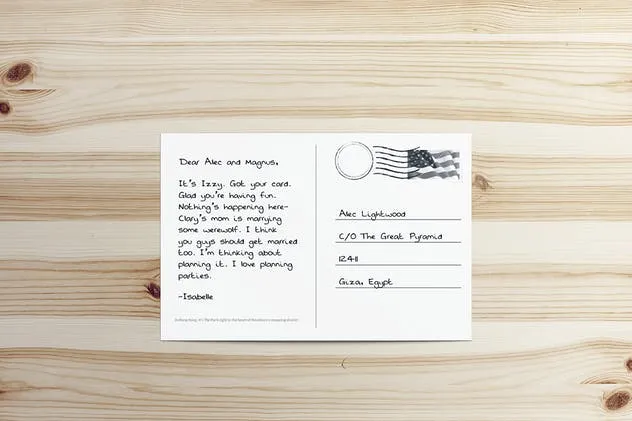 Dear Alec and Magnus,
It's Izzy. Got your card.
Glad you're having fun.
Nothing's happening here-
Clary's mom is marrying
some werewolf. I think
you guys should get married
too. I'm thinking about
planning it. I love planning
parties.
-Isabelle
Alec Lightwood
C/O The Great Pyramid
12411
Giza, Egypt